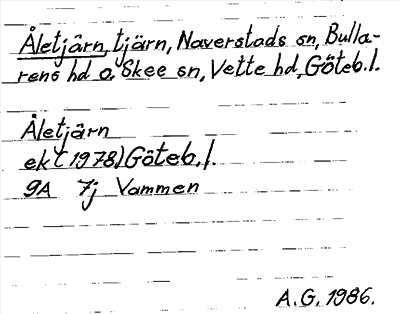 Åletjärn, tjärn, Naverstads sn, Bulla-
rens hd o. Skee sn, Vette hd, Göteb.l.
Åletjärn
ek (1978) Göteb.l.
9A 7j Vammen
A.G. 1986.